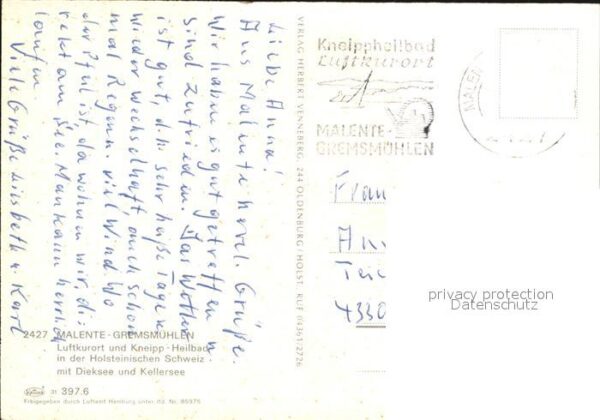 Liebe Anna!
Aus Malente herzl. Grüße.
Wir haben es gut getroffen u.
sind zufrieden. Das Wetter
ist gut, d.h. sehr heiße Tage u.
wieder wechselhaft, auch schon
mal Regen u. viel Wind. Wo
der Pfeil ist, da wohnen wir, di-
rekt am See. Man kann herrlich
laufen
Viele Grüße Lissbeth u. Karl
VERLAG HERBERT VENNEBERG, 244 OLDENBURG/HOLST. RUF (04361-2726
Kneippheilbad
Luftkurort
MALENTE-
GREMSMÜHLEN
MALEN
Frau
An
Teic
4330
privacy protection
Datenschutz
2427 MALENTE-GREMSMÜHLEN
Luftkurort und Kneipp-Heilbad
in der Holsteinischen Schweiz
mit Dieksee und Kellersee
31 397.6
Freigegeben durch Luftamt Hamburg unter lfd. Nr. 85975